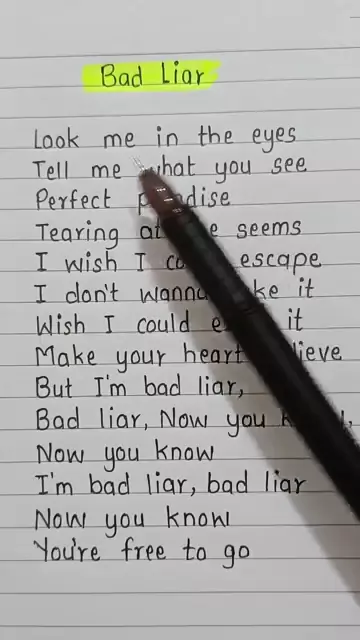 Bad Liar
Look me in the eyes
Tell me what you see
Perfect
Tearing at seems
I wish I escape
I don't wanna it
Wish I could it
Make your heart
But I'm bad liar,
Bad liar, Now you
Now you know
I'm bad liar, bad liar
Now you know
You're free to go